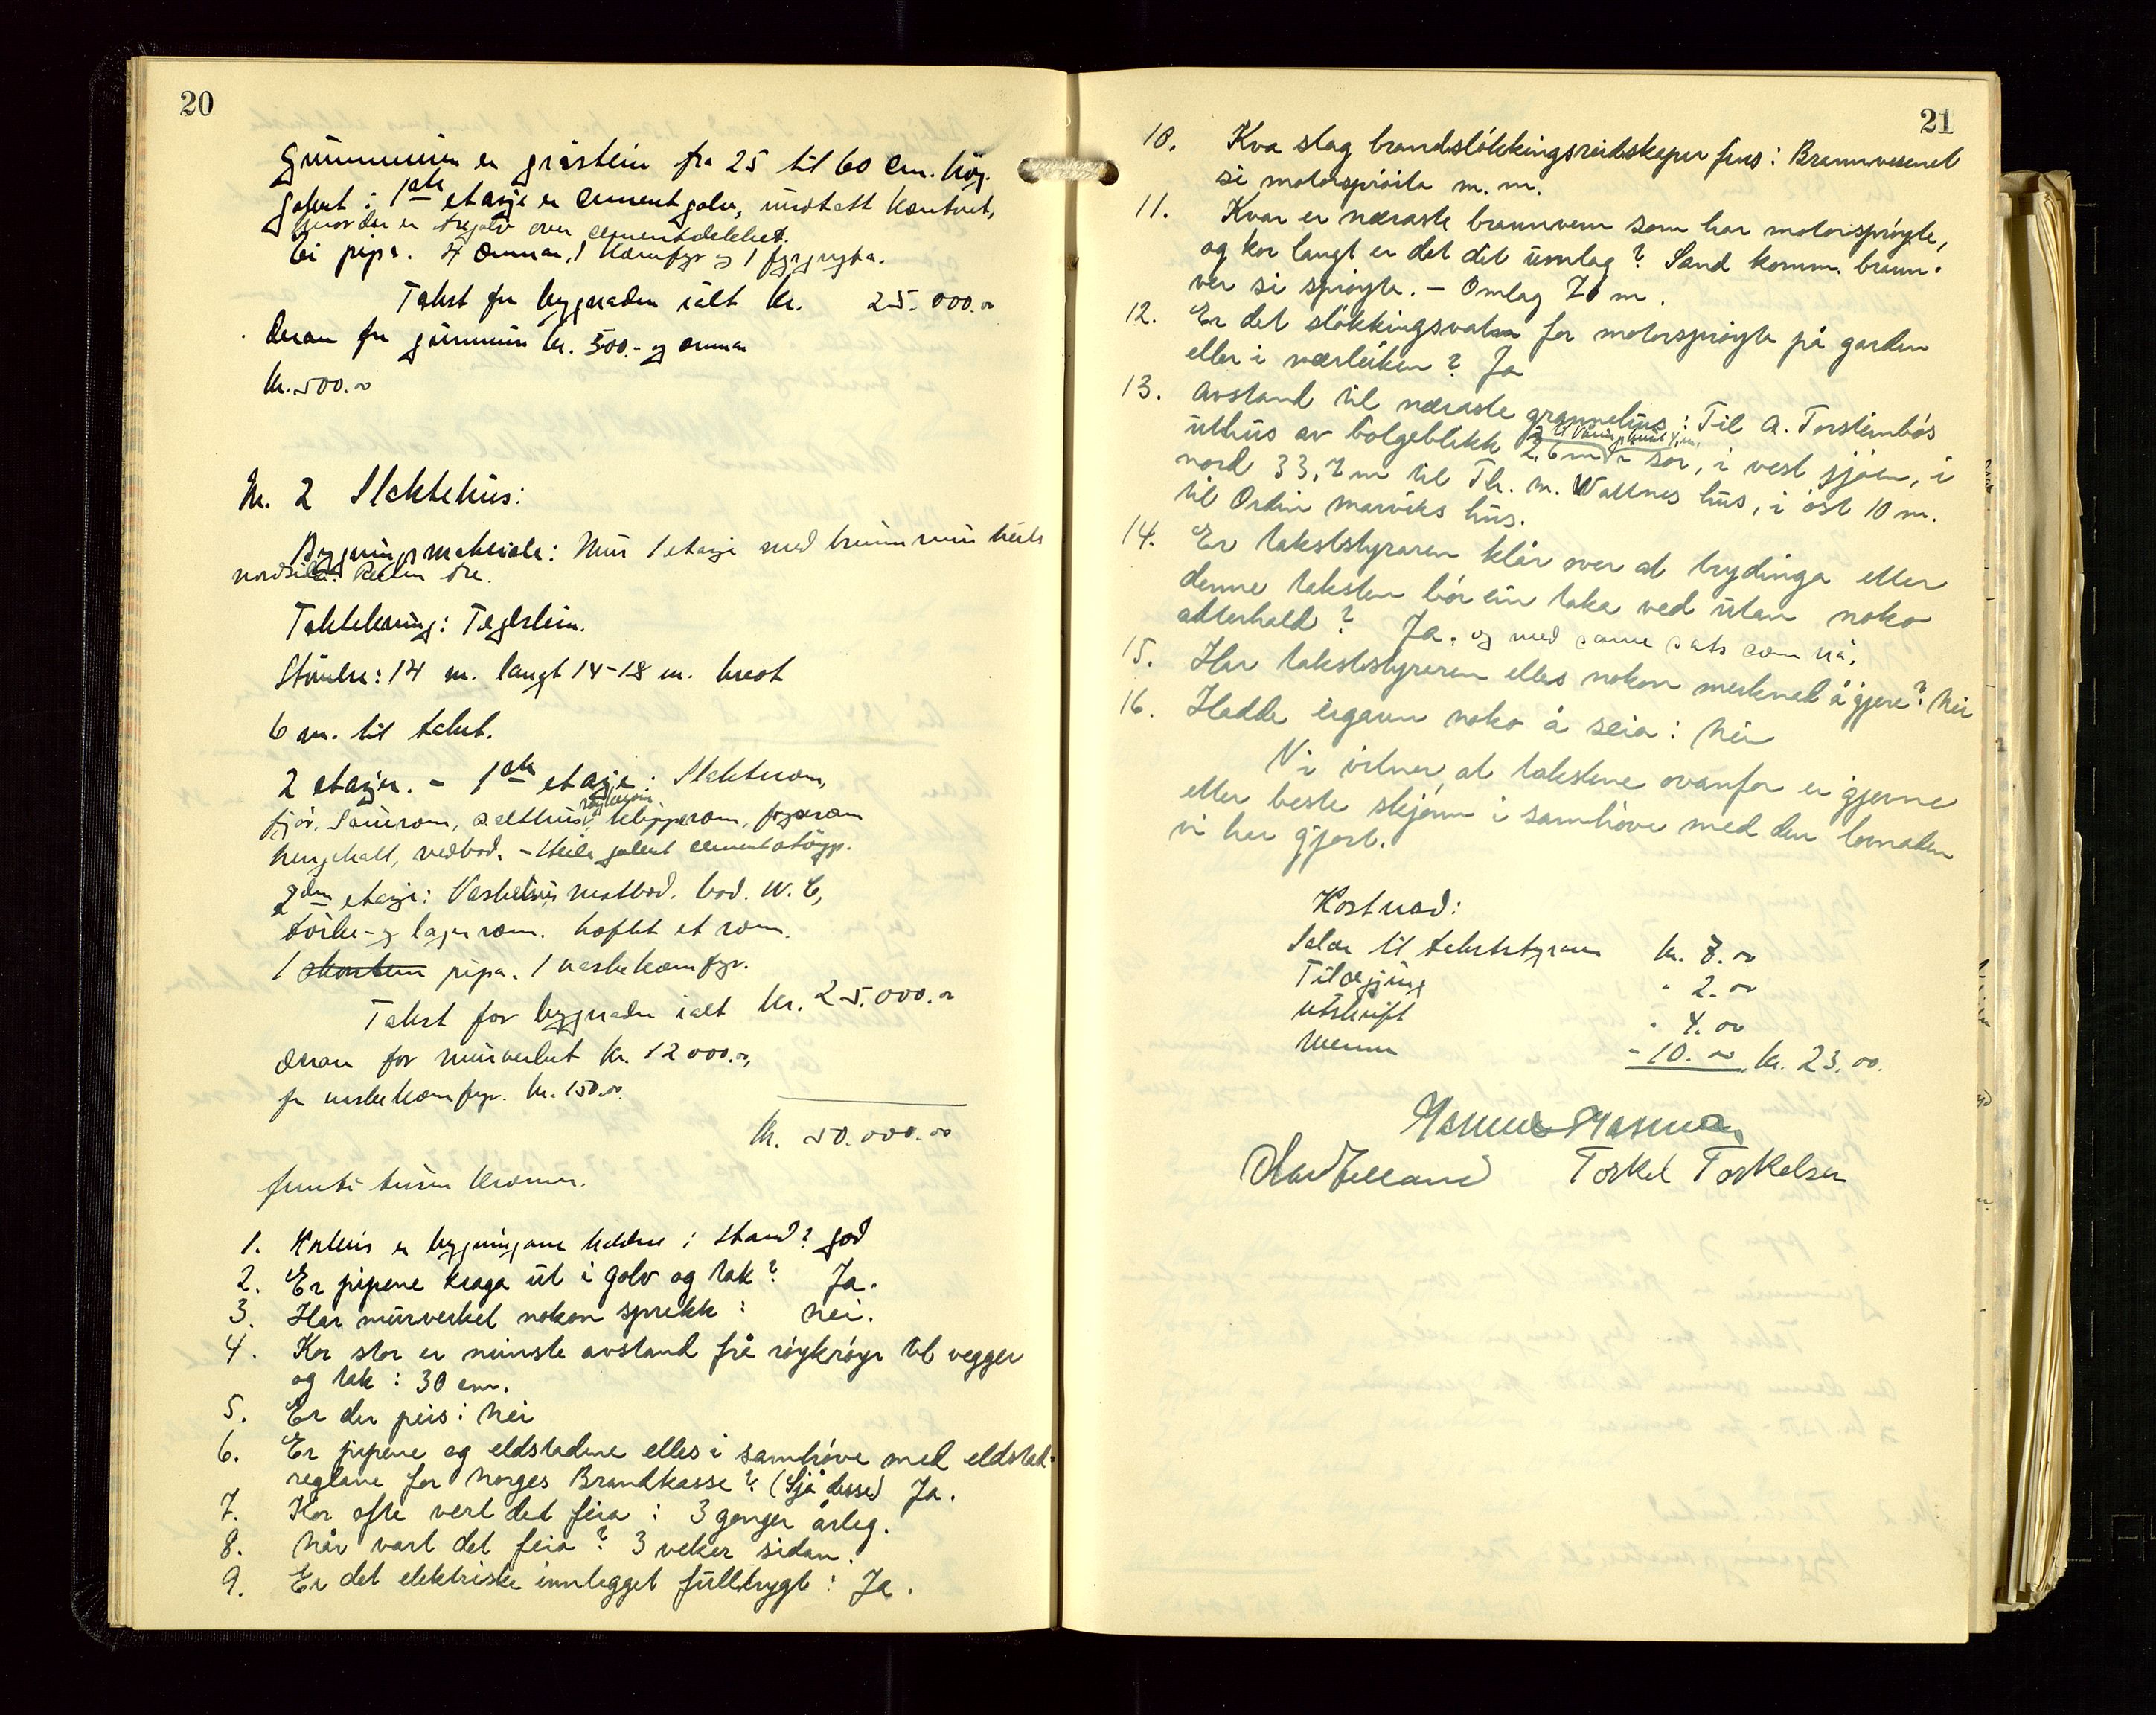 20
Grunnmuren er gråstein fra 25 til 60 cm. høg.
Golvet i 1ste etasje er cementgolv, undtatt kontoret,
hvor der er tregolv over cementdekket.
Ei pipa. 4 omnar, 1 komfyr og 1 fyrgryta.
Takst for bygnaden ialt kr. 25.000.00
derav for grunnmur kr. 500.- og omnar
kr. 500.00
Nr. 2 Slaktehus:
Bygningsmateriale: Mur 1 etasje med brannmur heile
nordsida. Resten tre.
Taktekking: Teglstein.
Størelse: 14 m. langt 14-18 m. bredt
6 m. til taket.
2 etasjer. - 1ste etasje: Slakterom,
røykeri
fjør, saurom, salthus, klipperom, fryserom
hengehall, vedbod. - Heile golvet cementstøyp.
2den etasje: Vaskehus, matbod. bod. W.C,
tørke- og lagerrom. Loftet et rom.
1 skorstein pipa. 1 vaskekomfyr.
Takst for bygnaden ialt kr. 25.000.00
derav for murverket kr. 12000.00,
for vaskekomfyr. kr. 150.00.
kr. 50.000.00
femti tusen kroner.
1. Korleis er bygningane haldne i stand? god
2. Er pipene kraga ut i golv og tak? Ja.
3. Har murverket nokon sprekk: Nei.
4. Kor stor er minste avstand frå røykrøyr til vegger
og tak: 30 cm.
5. Er der peis: Nei
6. Er pipene og eldstadene elles i samhøve med eldstad-
reglane for Norges Brandkasse? (Sjå desse) Ja.
7. Kor ofte vert det feia: 3 ganger årleg.
8. Når vart det feia? 3 veker sidan.
9. Er det elektriske innlegget fulltrygt: Ja.
21
10. Kva slag brandsløkkingsreidskaper fins: Brannvesenet
si motorsprøita m.m.
11. Kvar er næraste brannvern som har motorsprøyte,
og kor langt er det dit umlag? Sand komm. brann-
ver si sprøyte. - Omlag 70 m.
12. Er det sløkkingsvatn for motorsprøyte på garden
eller i nærleiken? Ja
13. Avstand til næraste grannehus: Til A. Torsteinbøs
uthus av bølgeblikk 2,6 m i sør, i vest sjøen, i
nord 33,7 m til Th. M. Wattnes hus, i øst 10 m.
til Ordin Marviks hus.
14. Er takststyraren klår over at trydinga etter
denne taksten bør ein taka ved utan noko
atterhald? Ja. og med same sats som nå.
15. Har takststyraren elles nokon merknad å gjere? Nei
16. Hadde eigaren noko å seia: Nei
Vi vitner at takstene ovanfor er gjerne
etter beste skjønn i samhøve med den lovnaden
vi har gjort.
Kostnad:
Salær til takststyraren kr. 7.00
Tilsegjing " 2.00
Utskrift " 4.00
Menn - 10.00 kr. 23.00.
Rasmus Rasmussen
Olav Felland Torkel Torkelsen